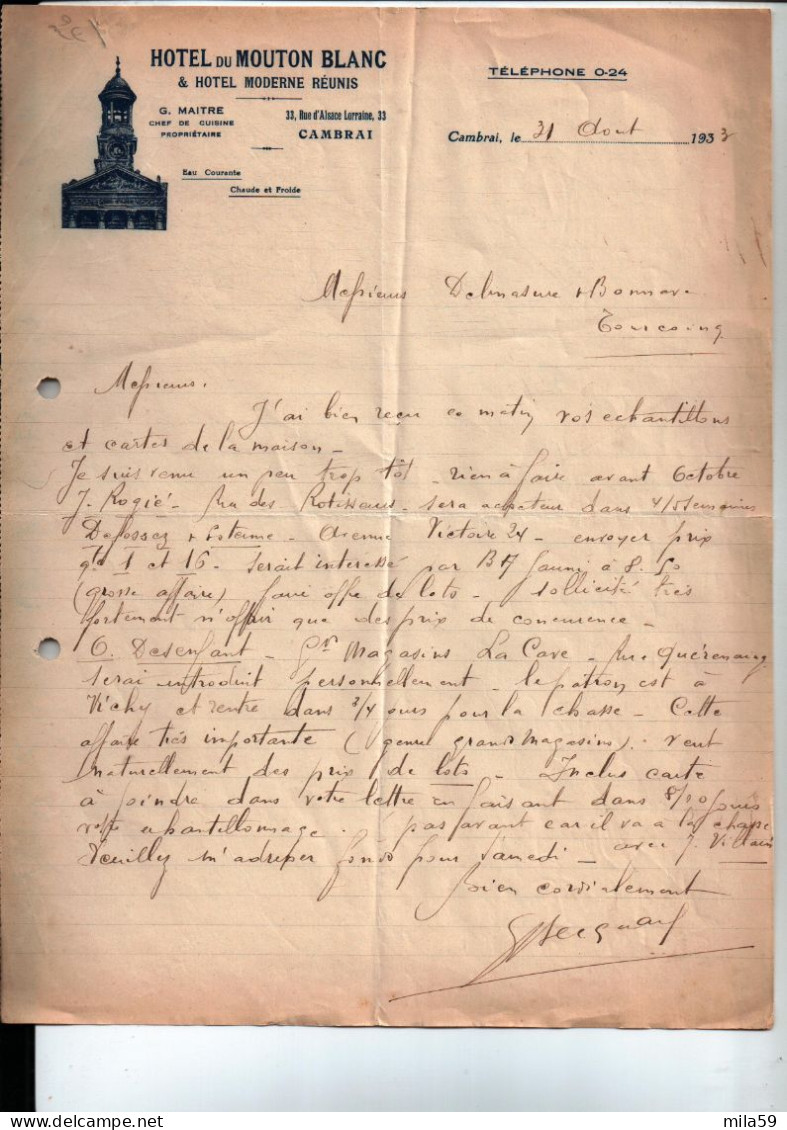 2€
HOTEL DU MOUTON BLANC
& HOTEL MODERNE RÉUNIS
G. MAITRE
CHEF DE CUISINE
PROPRIÉTAIRE
33, Rue d'Alsace Lorraine, 33
CAMBRAI
Eau Courante
Chaude et Froide
TÉLÉPHONE 0-24
Cambrai, le 31 Aout 1933
Messieurs Delmasure &
Tourcoing
Messieurs.
J'ai bien reçu ce matin vos echantillons
et cartes de la maison -
Je suis venu un peu trop tôt - rien à faire avant Octobre
J. Rogié - Rue des Rotisseurs - sera acheteur dans 4/5 semaines
Defossez + - Avenue Victoire 24 - envoyer prix
1 et 16 - serait interessé par à
(grosse affaire) faire offre de lots - sollicité très
fortement n'offrir que des prix de concurence -
O. Desenfant - Gds Magasins La Cave - Rue Quérénaing
serai introduit personnellement - le patron est à
Vichy et rentre dans 3/4 jours pour la chasse - Cette
affaire très importante (genre grands magasins) - veut
naturellement des prix de lots - Inclus carte
à joindre dans votre lettre en faisant dans 8/10 jours
votre echantillonnage. pas avant car il va à la chasse
avec J. Villain
Veuillez m'adresser fonds pour samedi -
Bien cordialement
mila59